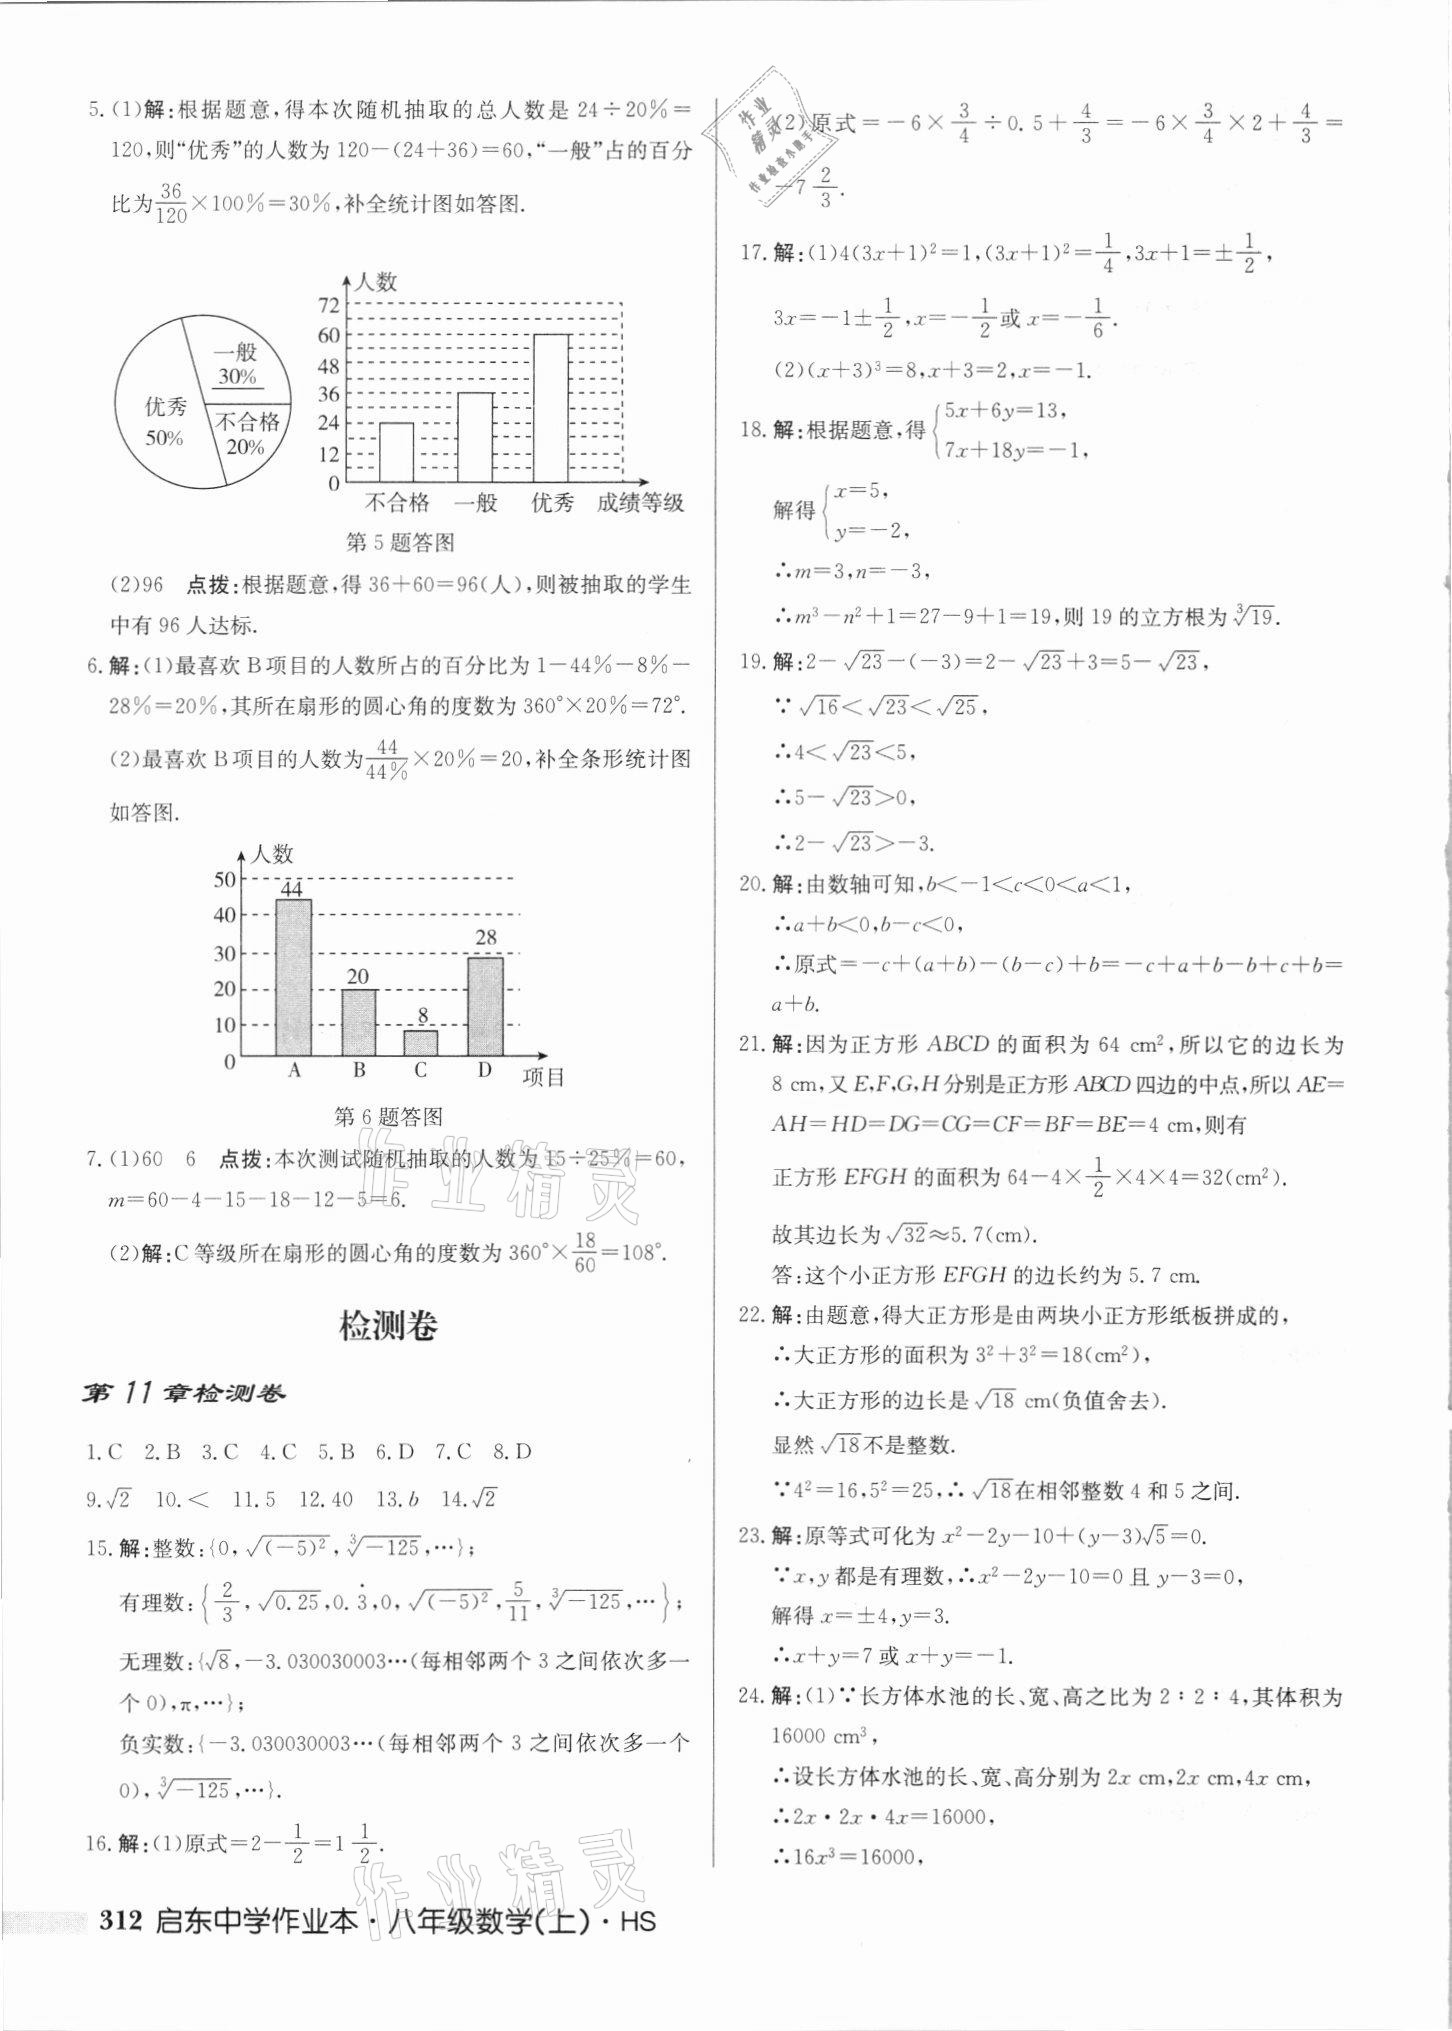 5. (1)解:根据题意,得本次随机抽取的总人数是 24÷20%=
120,则“优秀”的人数为 120-(24+36)=60,“一般”占的百分
比为36/120×100%=30%,补全统计图如答图.
一般
30%
优秀
50%
不合格
20%
人数
72
60
48
36
24
12
0
不合格 一般 优秀 成绩等级
第 5 题答图
(2)96 点拨:根据题意,得 36+60=96(人),则被抽取的学生
中有 96 人达标.
6. 解:(1)最喜欢 B 项目的人数所占的百分比为 1-44%-8%-
28%=20%,其所在扇形的圆心角的度数为 360°×20%=72°.
(2)最喜欢 B 项目的人数为44/44%×20%=20,补全条形统计图
如答图.
人数
50
40
30
20
10
0
44
20
8
28
A B C D 项目
第 6 题答图
7. (1)60 6 点拨:本次测试随机抽取的人数为 15÷25%=60,
m=60-4-15-18-12-5=6.
(2)解:C 等级所在扇形的圆心角的度数为 360°×18/60=108°.
检测卷
第 11 章检测卷
1. C 2. B 3. C 4. C 5. B 6. D 7. C 8. D
9. √2 10. < 11. 5 12. 40 13. b 14. √2
15. 解:整数:{0,√(-5)²,∛-125,…};
有理数:{2/3,√0.25,0.3̇,0,√(-5)²,5/11,∛-125,…};
无理数:{√8,-3.030030003…(每相邻两个 3 之间依次多一
个 0),π,…};
负实数:{-3.030030003…(每相邻两个 3 之间依次多一个
0),∛-125,…}.
16. 解:(1)原式=2-1/2=1 1/2.
312 启东中学作业本·八年级数学(上)·HS
(2)原式=-6×3/4÷0.5+4/3=-6×3/4×2+4/3=
-7 2/3.
17. 解:(1)4(3x+1)²=1,(3x+1)²=1/4,3x+1=±1/2,
3x=-1±1/2,x=-1/2或 x=-1/6.
(2)(x+3)³=8,x+3=2,x=-1.
18. 解:根据题意,得{5x+6y=13,
7x+18y=-1,
解得{x=5,
y=-2,
∴m=3,n=-3,
∴m³-n²+1=27-9+1=19,则 19 的立方根为 ∛19.
19. 解:2-√23-(-3)=2-√23+3=5-√23,
∵√16<√23<√25,
∴4<√23<5,
∴5-√23>0,
∴2-√23>-3.
20. 解:由数轴可知,b<-1<c<0<a<1,
∴a+b<0,b-c<0,
∴原式=-c+(a+b)-(b-c)+b=-c+a+b-b+c+b=
a+b.
21. 解:因为正方形 ABCD 的面积为 64 cm²,所以它的边长为
8 cm,又 E,F,G,H 分别是正方形 ABCD 四边的中点,所以 AE=
AH=HD=DG=CG=CF=BF=BE=4 cm,则有
正方形 EFGH 的面积为 64-4×1/2×4×4=32(cm²).
故其边长为 √32≈5.7(cm).
答:这个小正方形 EFGH 的边长约为 5.7 cm.
22. 解:由题意,得大正方形是由两块小正方形纸板拼成的,
∴大正方形的面积为 3²+3²=18(cm²),
∴大正方形的边长是 √18 cm(负值舍去).
显然 √18不是整数.
∵4²=16,5²=25,∴√18在相邻整数 4 和 5 之间.
23. 解:原等式可化为 x²-2y-10+(y-3)√5=0.
∵x,y 都是有理数,∴x²-2y-10=0 且 y-3=0,
解得 x=±4,y=3.
∴x+y=7 或 x+y=-1.
24. 解:(1)∵长方体水池的长、宽、高之比为 2∶2∶4,其体积为
16000 cm³,
∴设长方体水池的长、宽、高分别为 2x cm,2x cm,4x cm,
∴2x·2x·4x=16000,
∴16x³=16000,
作业精灵
作业精灵
作业精灵